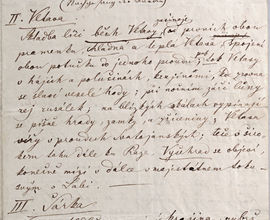 II. Vltava
Skladba líčí běh Vltavy, začínaje
od prvních obou
pramenků, chladná a teplá Vltava, spojení
obou potůčků do jednoho proudu; pak Vltavy
v hájích a po lučinách, krajinami, kde zrovna
se slaví veselé hody; při noční záři luny
rej rusálek; na blízkých skalách vypínají
se pyšně hrady, zámky a zříceniny; Vltava
víří v proudech Svatojánských; teče v širo-
kém toku dále ku Praze, Vyšehrad se objeví,
konečně mizí v dálce v majestátném toku
svým v Labi.
III. Šárka